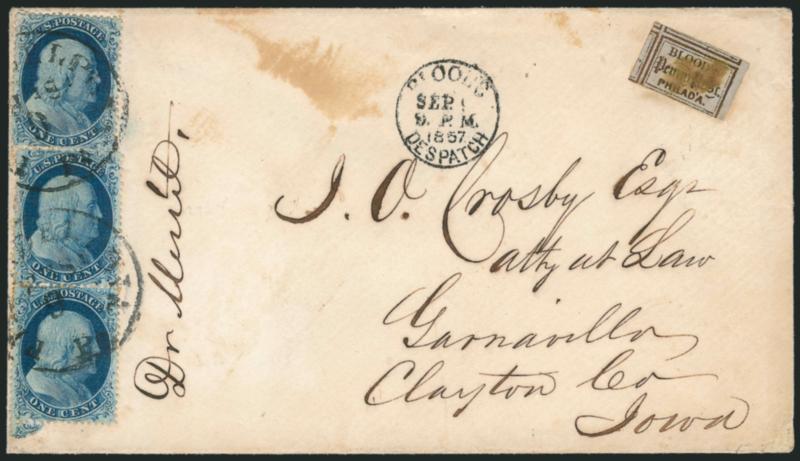 U.S. POSTAGE
ONE CENT
U.S. POSTAGE
ONE CENT
U.S. POSTAGE
ONE CENT
BLOODS
SEP. 1
9. P. M.
1857
DESPATCH
BLOOD'S
Penny Post.
PHILAD'A.
J. O. Crosby Esqr
atty at Law
Garnavillo
Clayton Co
Iowa
Dr